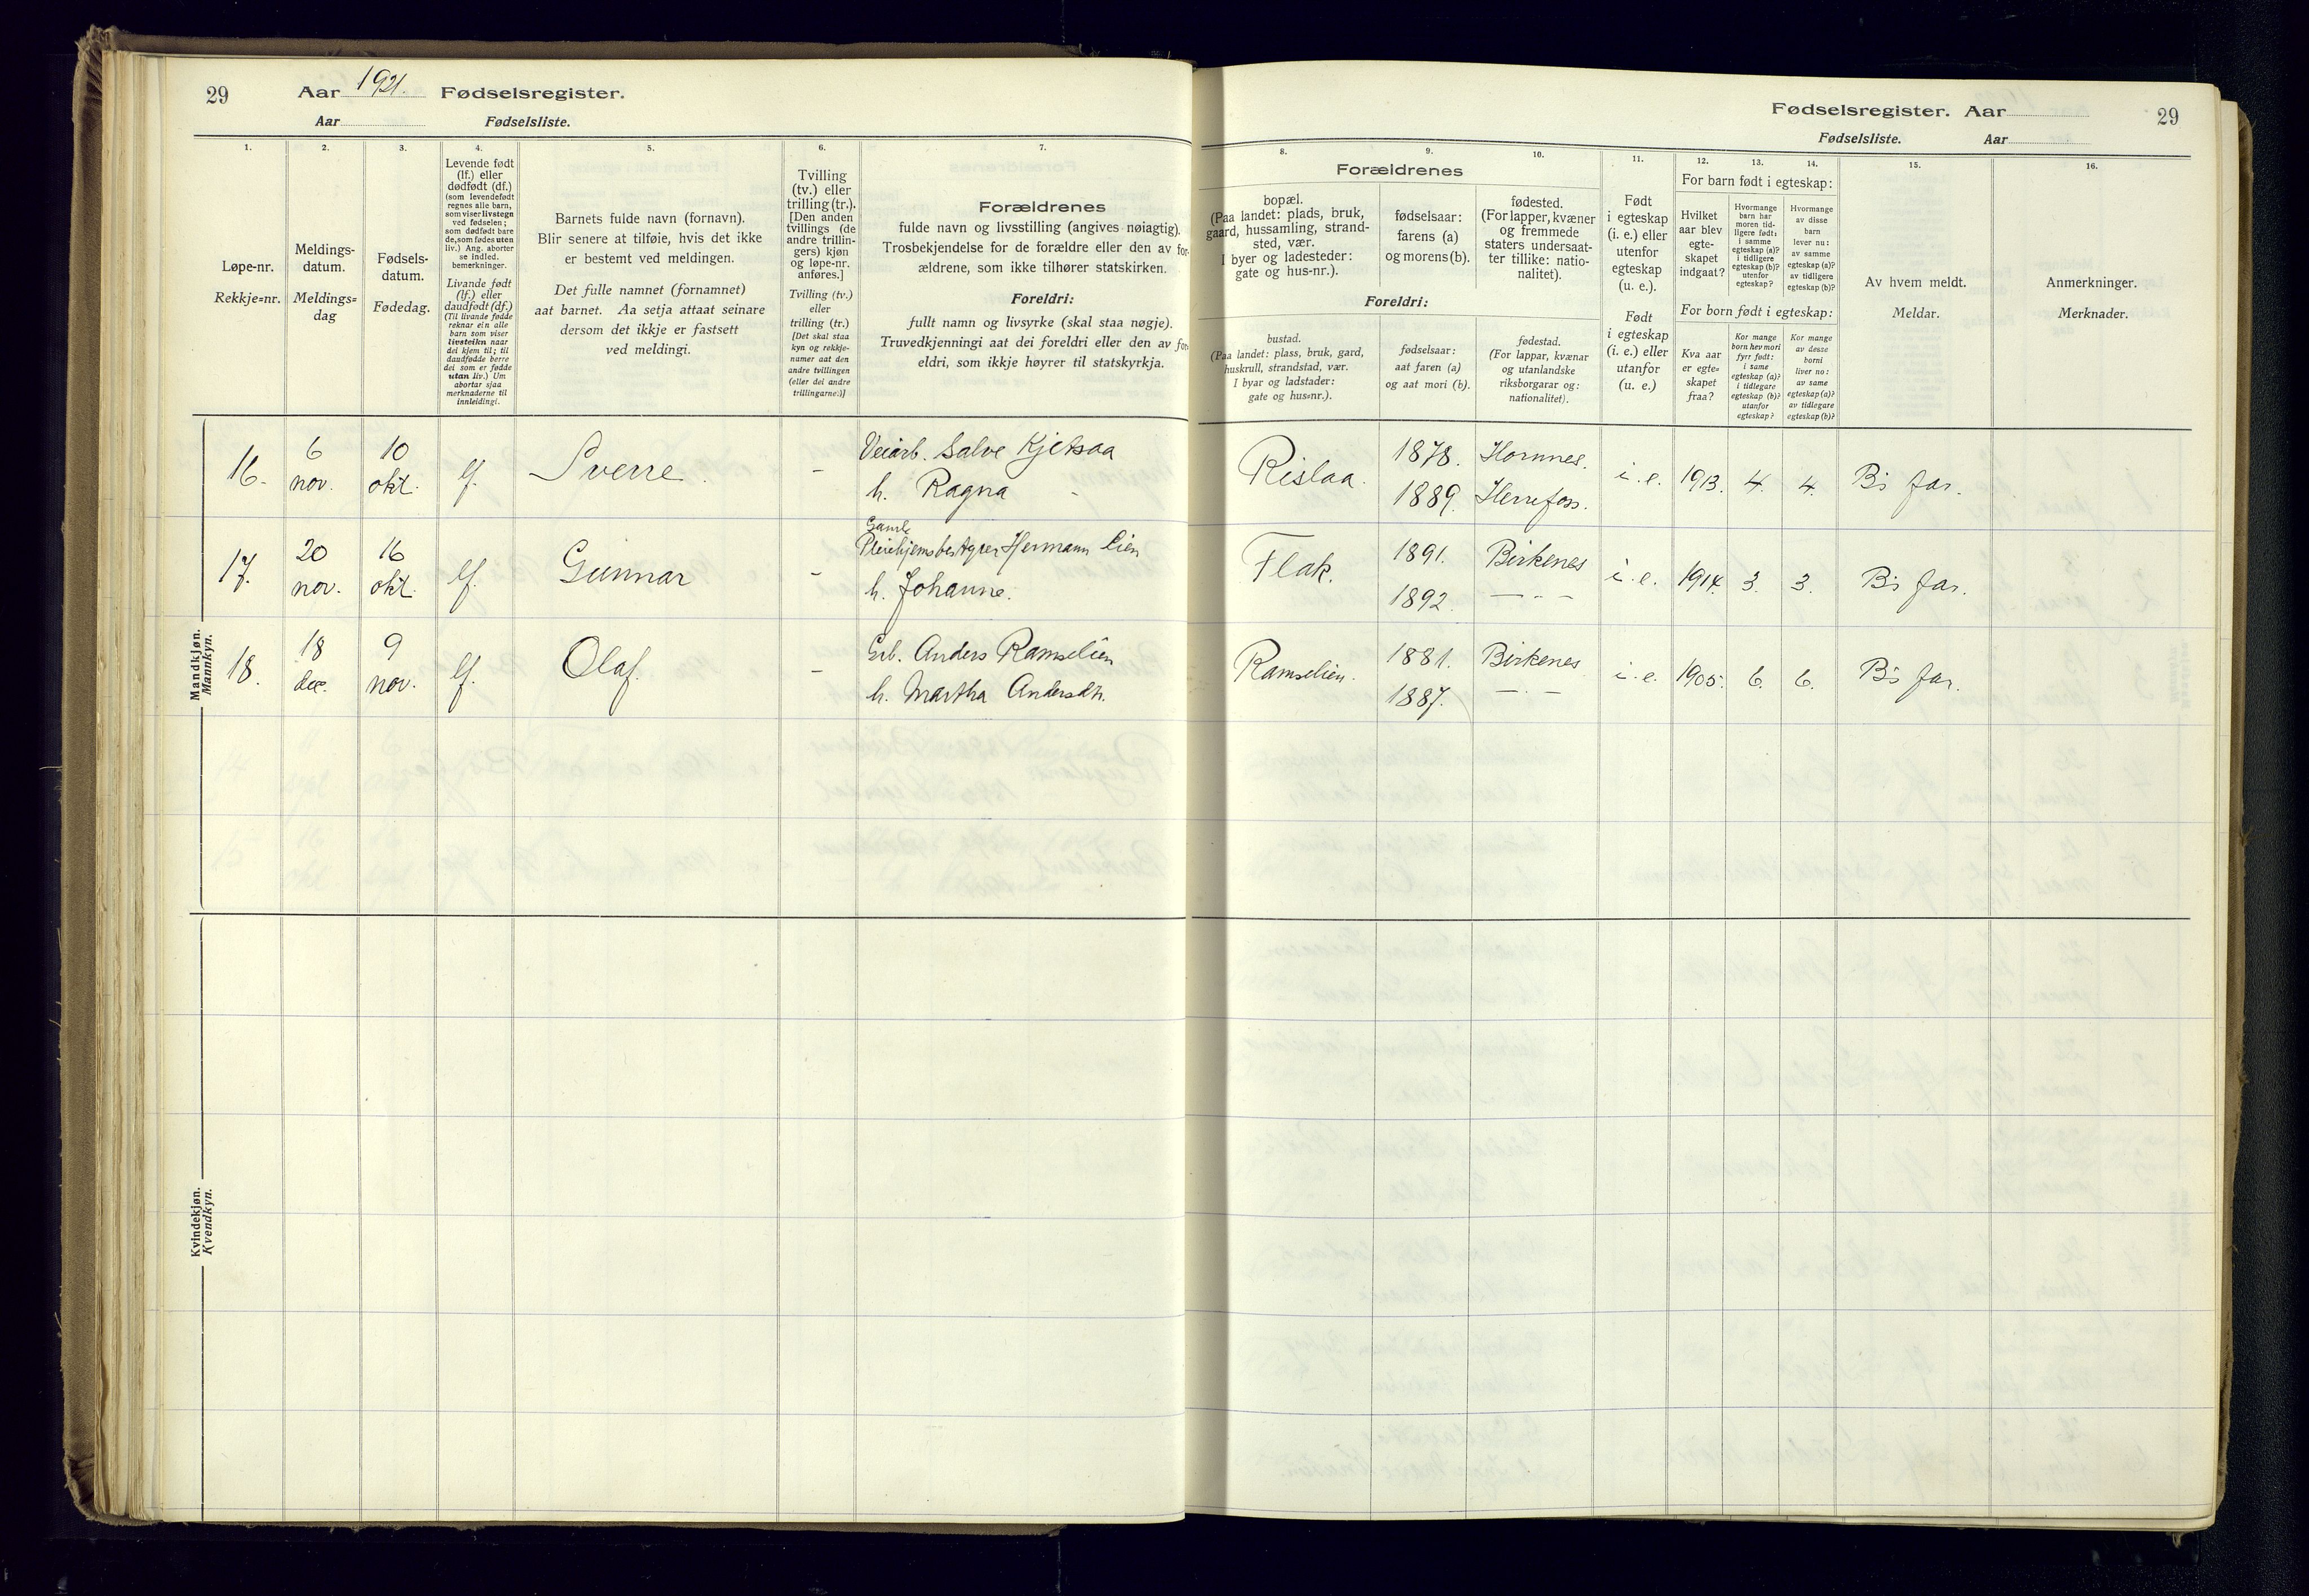 29 Aar 1921. Fødselsregister.
Aar Fødselsliste.
1.
Løpe-nr.
Rekkje=nr.
2.
Meldings-
datum.
Meldings=
dag
3.
Fødsels-
datum.
Fødedag.
4.
Levende født
(lf.) eller
dødfødt (df.)
(som levendefødt
regnes alle barn,
som viser livstegn
ved fødselen;
som dødfødt bare
de, som fødes uten
liv.) Ang. aborter
se indled.
bemerkninger.
Livande født
(lf.) eller
daudfødt (df.)
(Til livande fødde
reknar ein alle
barn som viser
livsteikn naar
dei kjem til; til
daudfødde berre
dei som er fødde
utan liv.) Um
abortar sjaa
merknaderne til
innleidingi.
5.
Barnets fulde navn (fornavn).
Blir senere at tilføie, hvis det ikke
er bestemt ved meldingen.
Det fulle namnet (fornamnet)
aat barnet. Aa setja attaat seinare
dersom det ikkje er fastsett
ved meldingi.
6.
Tvilling
(tv.) eller
trilling (tr.).
[Den anden
tvillings (de
andre trillin-
gers) kjøn
og løpe-nr.
anføres.]
Tvilling (tv.)
eller
trilling (tr.)
[Det skal staa
kyn og rekkje-
numer aat den
andre tvillingen
(eller dei andre
trillingarne.)]
7.
Forældrenes
fulde navn og livsstilling (angives nøiagtig).
Trosbekjendelse for de forældre eller den av for-
ældrene, som ikke tilhører statskirken.
Foreldri:
fullt namn og livsyrke (skal staa nøgje).
Truvedkjenningi aat dei foreldri eller den av for-
eldri, som ikkje høyrer til statskyrkja.
Mandkjøn.
Mannkyn.
16. 6 nov. 10 okt. lf. Sverre. - Veiarb. Salve Kjetsaa
h. Ragna -
17. 20 nov. 16 okt. lf. Gunnar - Gamle
Pleiehjemsbestyrer Hermann Lien
h. Johanne.
18. 18 dec. 9 nov. lf. Olaf. - Grb. Anders Ramselien
h. Martha Andersdtr.
Kvindekjøn.
Kvendkyn.
Fødselsregister. Aar 29
Fødselsliste. Aar
8. 9. 10.
Forældrenes
bopæl.
(Paa landet: plads, bruk,
gaard, hussamling, strand-
sted, vær.
I byer og ladesteder:
gate og hus-nr.).
fødselsaar:
farens (a)
og morens (b).
fødested.
(For lapper, kvæner
og fremmede
staters undersaat-
ter tillike: natio-
nalitet).
Foreldri:
bustad.
(Paa landet: plass, bruk, gard,
huskrull, strandstad, vær.
I byar og ladstader:
gate og hus=nr.).
fødselsaar:
aat faren (a)
og aat mori (b).
fødestad.
(For lappar, kvænar
og utanlandske
riksborgarar og:
nationalitet).
11.
Født
i egteskap
(i. e.) eller
utenfor
egteskap
(u. e.).
Født
i egteskap
(i. e.) eller
utanfor
(u. e.)
12. 13. 14.
For barn født i egteskap:
Hvilket
aar blev
egte-
skapet
indgaat?
Hvormange
barn har
moren tid-
ligere født:
i samme
egteskap (a)?
i tidligere
egteskap (b)?
utenfor
egteskap?
Hvormange
av disse
barn
lever nu:
av samme
egteskap (a)?
av tidligere
egteskap (b)?
For born født i egteskap:
Kva aar
er egte=
skapet
fraa?
Kor mange
born hev mori
fyrr født:
i same
egteskap (a)?
i tidlegare
egteskap (b)?
utanfor
egteskap?
Kor mange
av desse
borni
liver no:
av same
egteskap (a)?
av tidlegare
egteskap (b)?
15.
Av hvem meldt.
Meldar.
16.
Anmerkninger.
Merknader.
Rislaa. 1878. Hornnes. i. e. 1913. 4. 4. Bs far.
1889. Herrefoss.
Flak. 1891. Birkenes i. e. 1914. 3. 3. Bs far.
1892. — - —
Ramselien. 1881. Birkenes i. e. 1905. 6. 6. Bs far.
1887. — - —